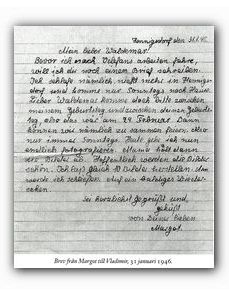 Hennigsdorf den 31.1.46.
Mein lieber Waldemar!
Bevor ich nach Velefans arbeiten fahre,
will ich dir noch einen Brief schreiben.
Ich schlafe nämlich nicht mehr in Hennigs
dorf und komme nur Sonntags nach Hause.
Lieber Waldemar komme doch bitte zwischen
meinen Geburtstag und zwischen deinen Geburts
tag also das wär am 29 Februar. Dann
können wir nämlich zusammen feiern. Aber
nur immer Sonntags. Heute gehe ich nun
endlich fotografieren. Mama hält dann
die Bilder ab. Hoffentlich werden die Bilder
schön. Ich lasse gleich 10 Bilder herstellen. Dann
werde ich schließen. Auf ein baldiges Wieder-
sehen.
Sei herzlichst gegrüßt und
geküßt
von Deiner lieben
Margot.
Brev från Margot till Vladimir, 31 januari 1946.